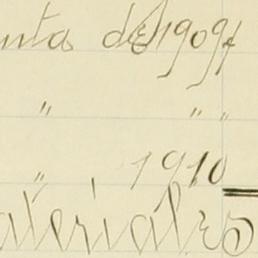 nta de 1909
" " "
" 1910
ateriales